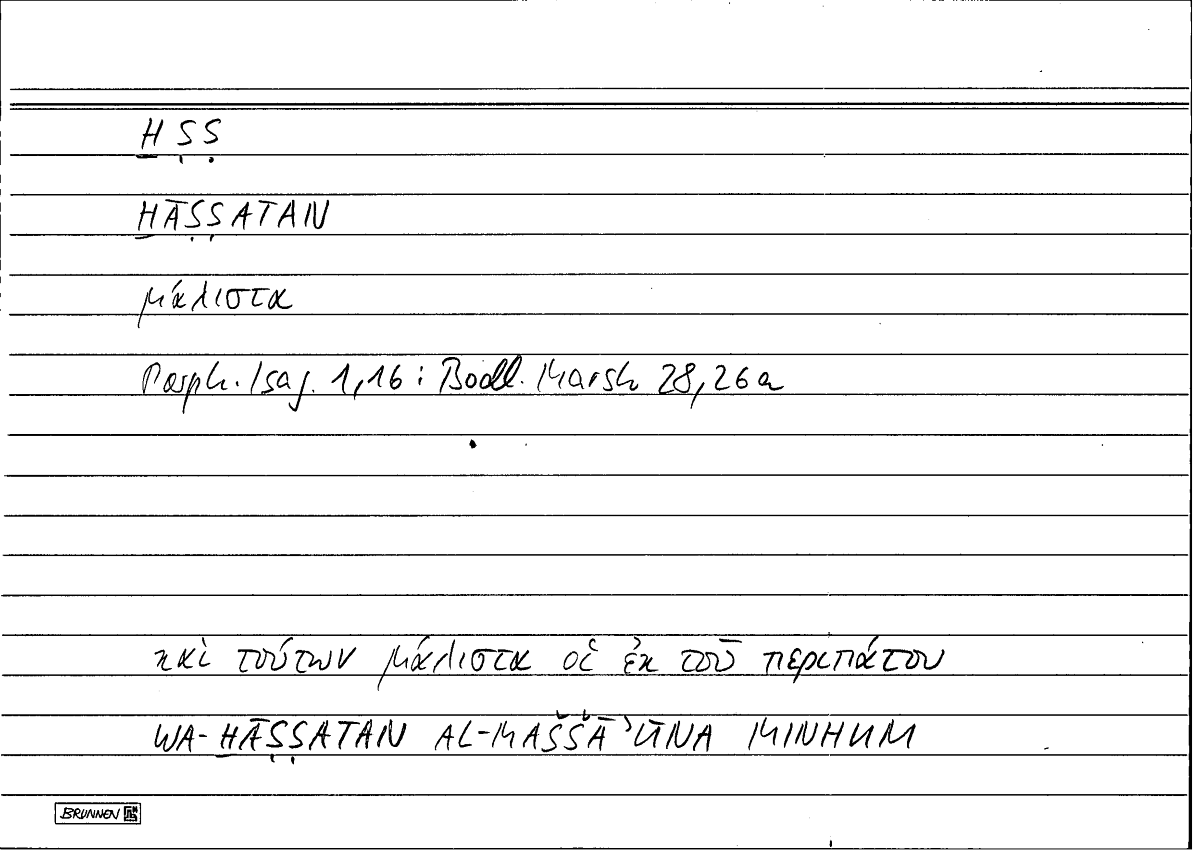 H̱ ṢṢ
H̱ĀṢṢATAN
μάλιστα
Porph. Isag. 1,16: Bodl. Marsh 28,26a
καὶ τούτων μάλιστα οἱ ἐκ τοῦ περιπάτου
WA-H̱ĀṢṢATAN AL-MAŠŠĀʾŪNA MINHUM
BRUNNEN